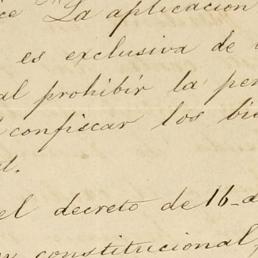 ce La aplicacion
es exclusiva de
al prohibir la pe
confiscar los bie
el decreto de 16 d
constitucional